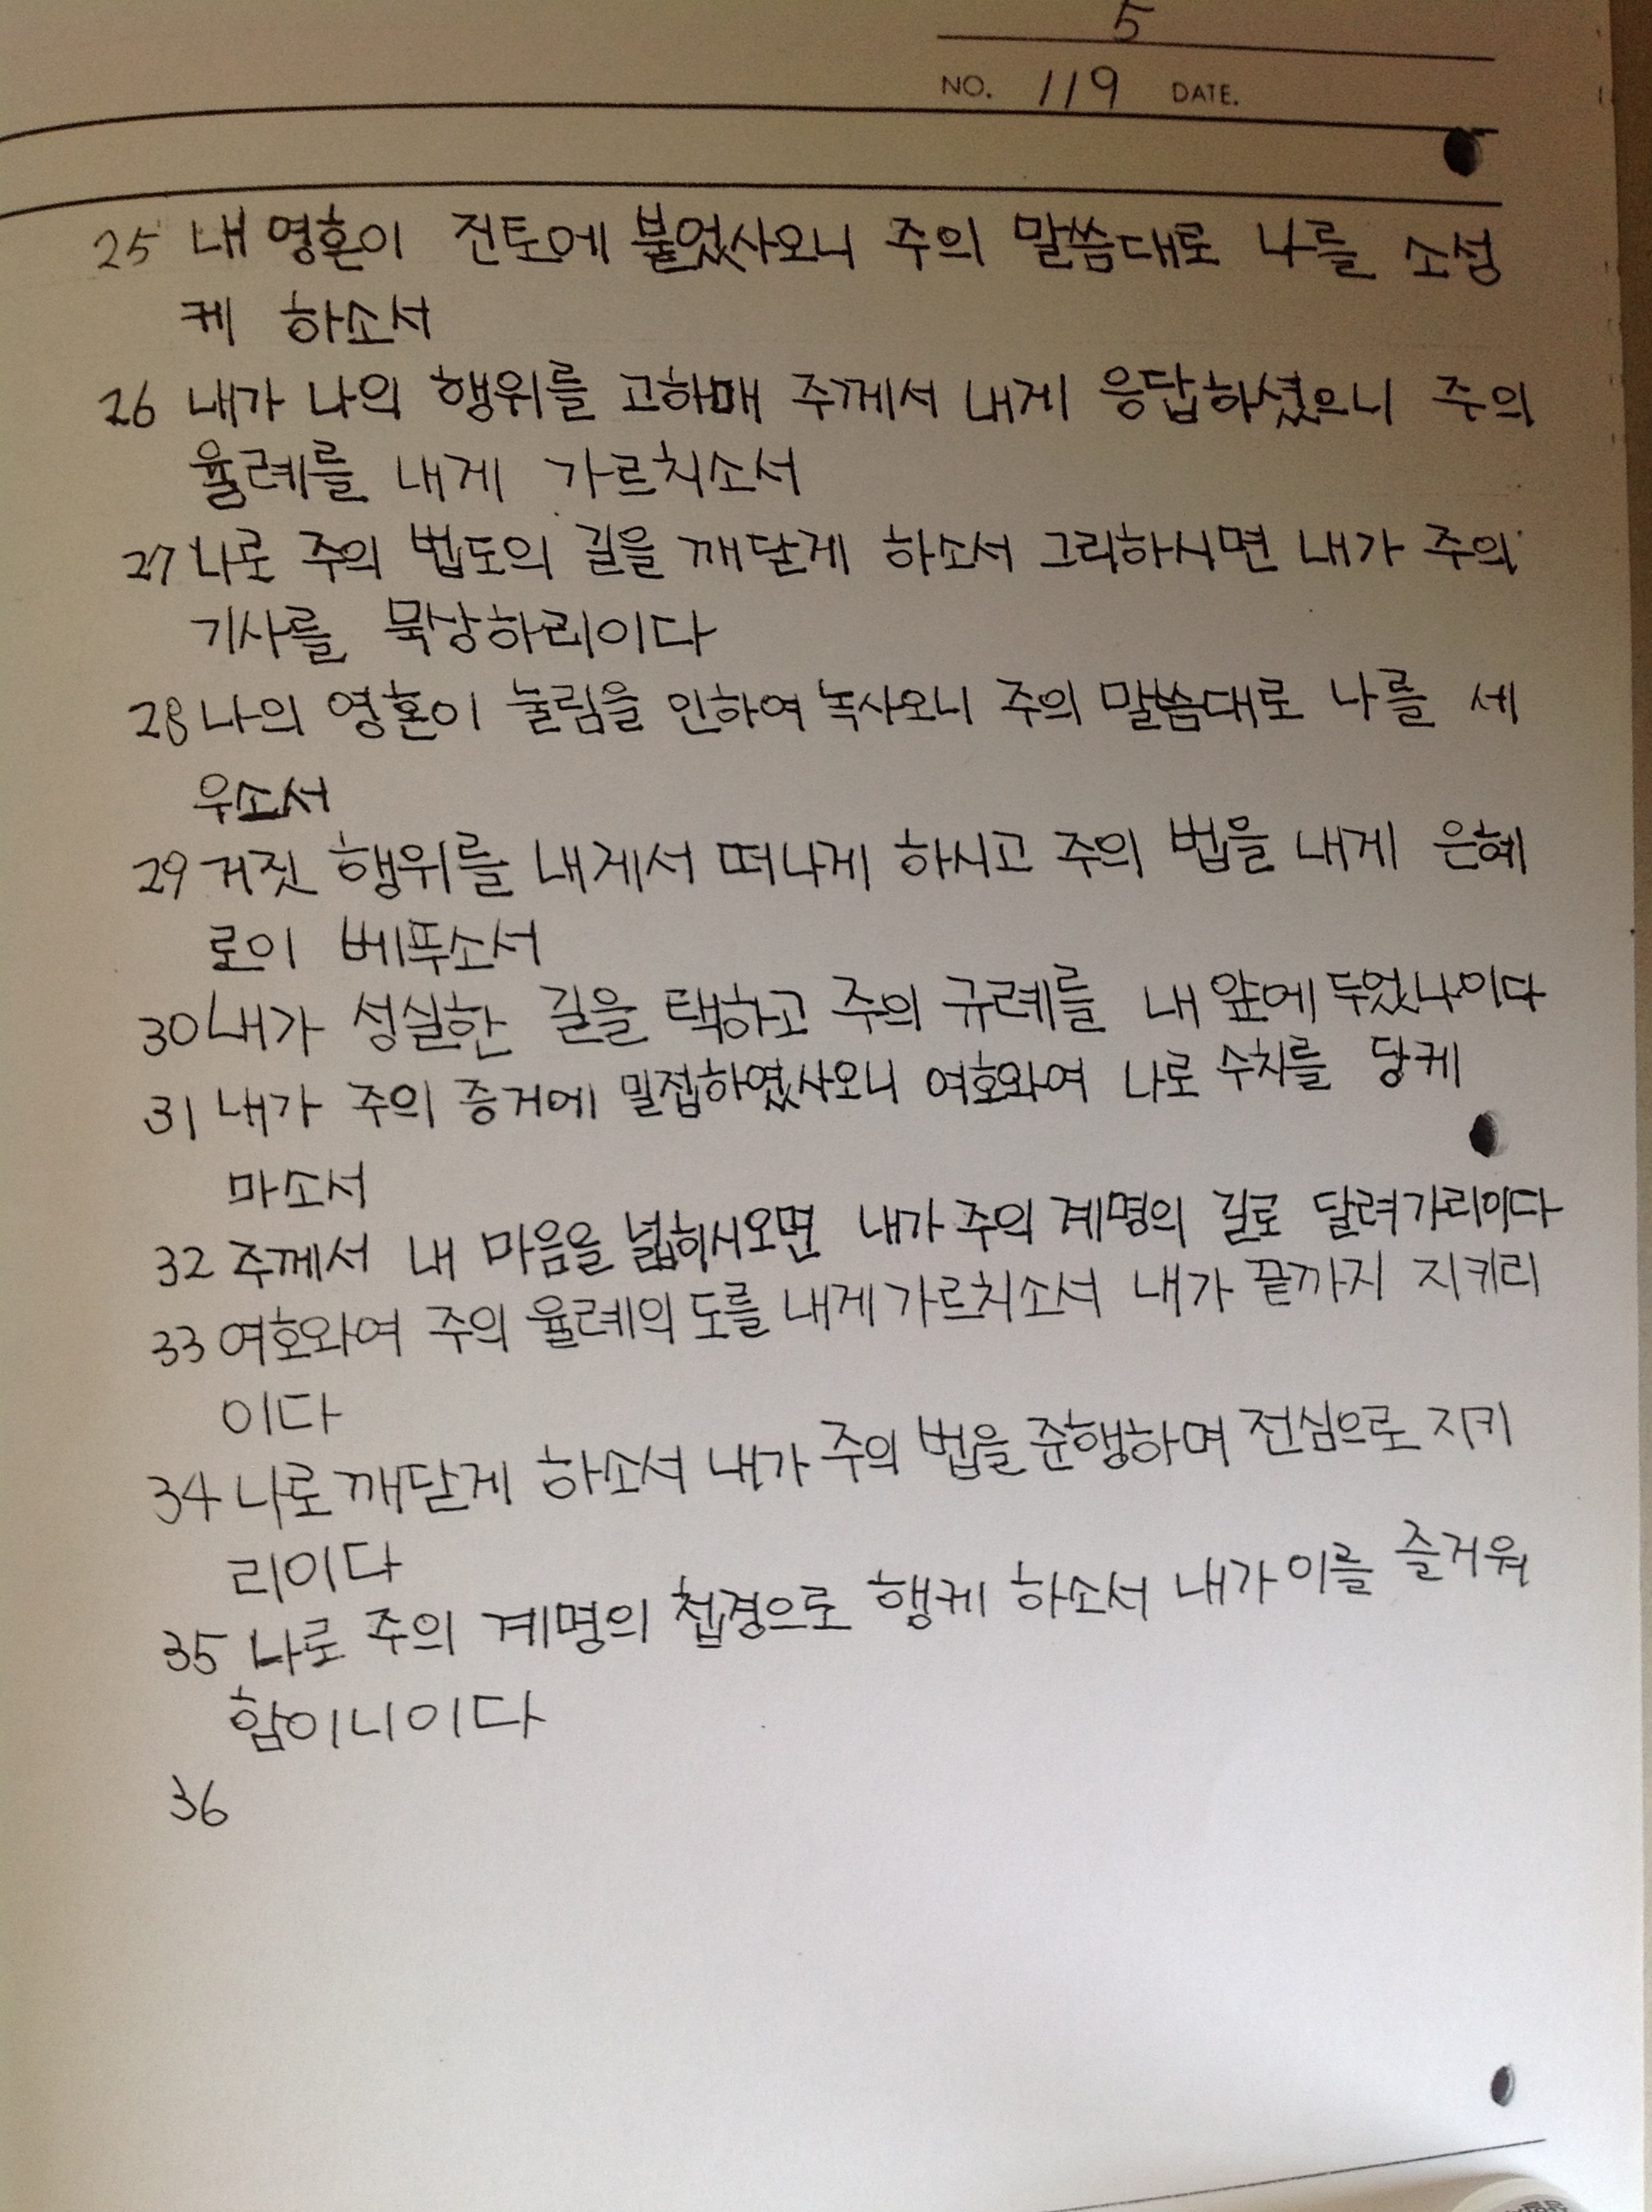 5
NO. 119 DATE.
25 내 영혼이 진토에 붙었사오니 주의 말씀대로 나를 소성
케 하소서
26 내가 나의 행위를 고하매 주께서 내게 응답하셨으니 주의
율례를 내게 가르치소서
27 나로 주의 법도의 길을 깨닫게 하소서 그리하시면 내가 주의
기사를 묵상하리이다
28 나의 영혼이 눌림을 인하여 녹사오니 주의 말씀대로 나를 세
우소서
29 거짓 행위를 내게서 떠나게 하시고 주의 법을 내게 은혜
로이 베푸소서
30 내가 성실한 길을 택하고 주의 규례를 내 앞에 두었나이다
31 내가 주의 증거에 밀접하였사오니 여호와여 나로 수치를 당케
마소서
32 주께서 내 마음을 넓히시오면 내가 주의 계명의 길로 달려가리이다
33 여호와여 주의 율례의 도를 내게 가르치소서 내가 끝까지 지키리
이다
34 나로 깨닫게 하소서 내가 주의 법을 준행하며 전심으로 지키
리이다
35 나로 주의 계명의 첩경으로 행케 하소서 내가 이를 즐거워
함이니이다
36